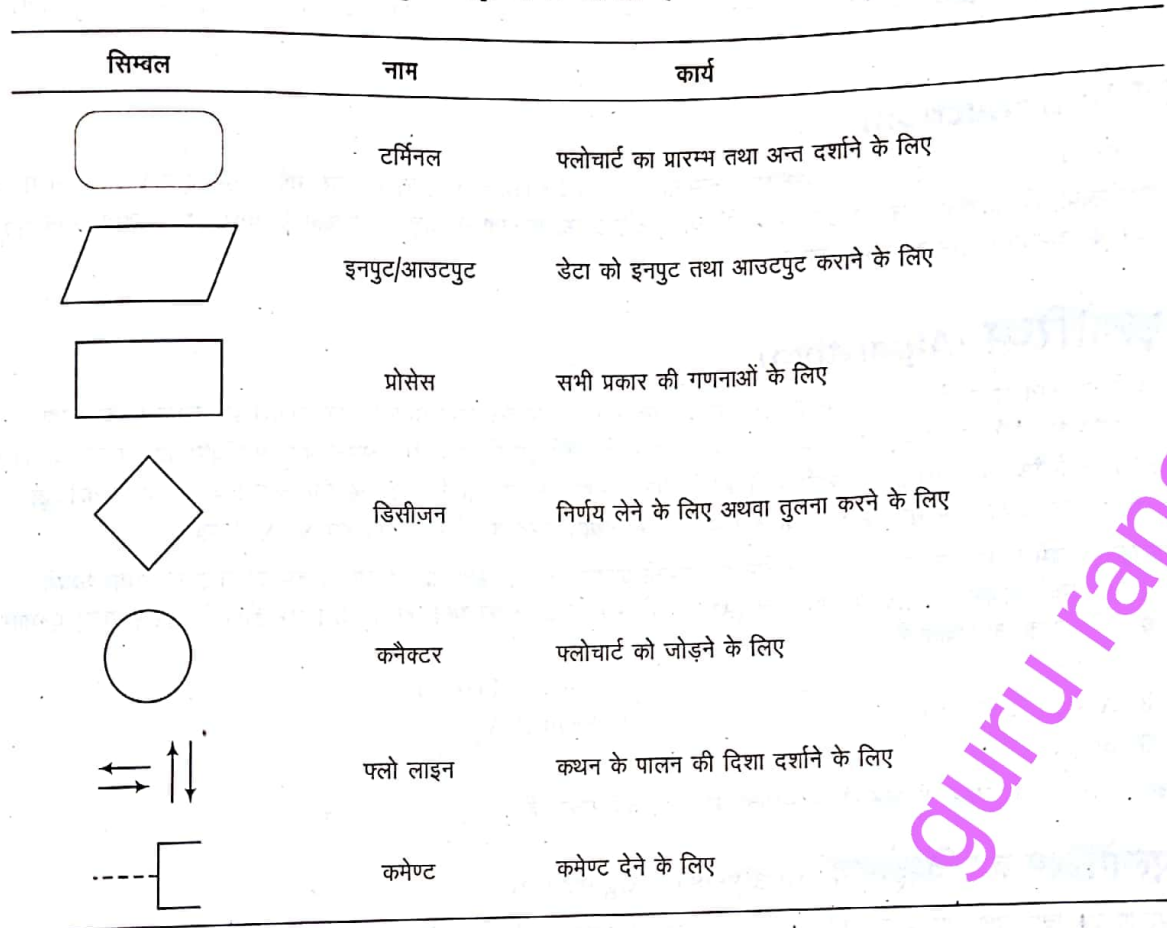 सिम्बल नाम कार्य
टर्मिनल फ्लोचार्ट का प्रारम्भ तथा अन्त दर्शाने के लिए
इनपुट/आउटपुट डेटा को इनपुट तथा आउटपुट कराने के लिए
प्रोसेस सभी प्रकार की गणनाओं के लिए
डिसीज़न निर्णय लेने के लिए अथवा तुलना करने के लिए
कनैक्टर फ्लोचार्ट को जोड़ने के लिए
फ्लो लाइन कथन के पालन की दिशा दर्शाने के लिए
कमेण्ट कमेण्ट देने के लिए
guru